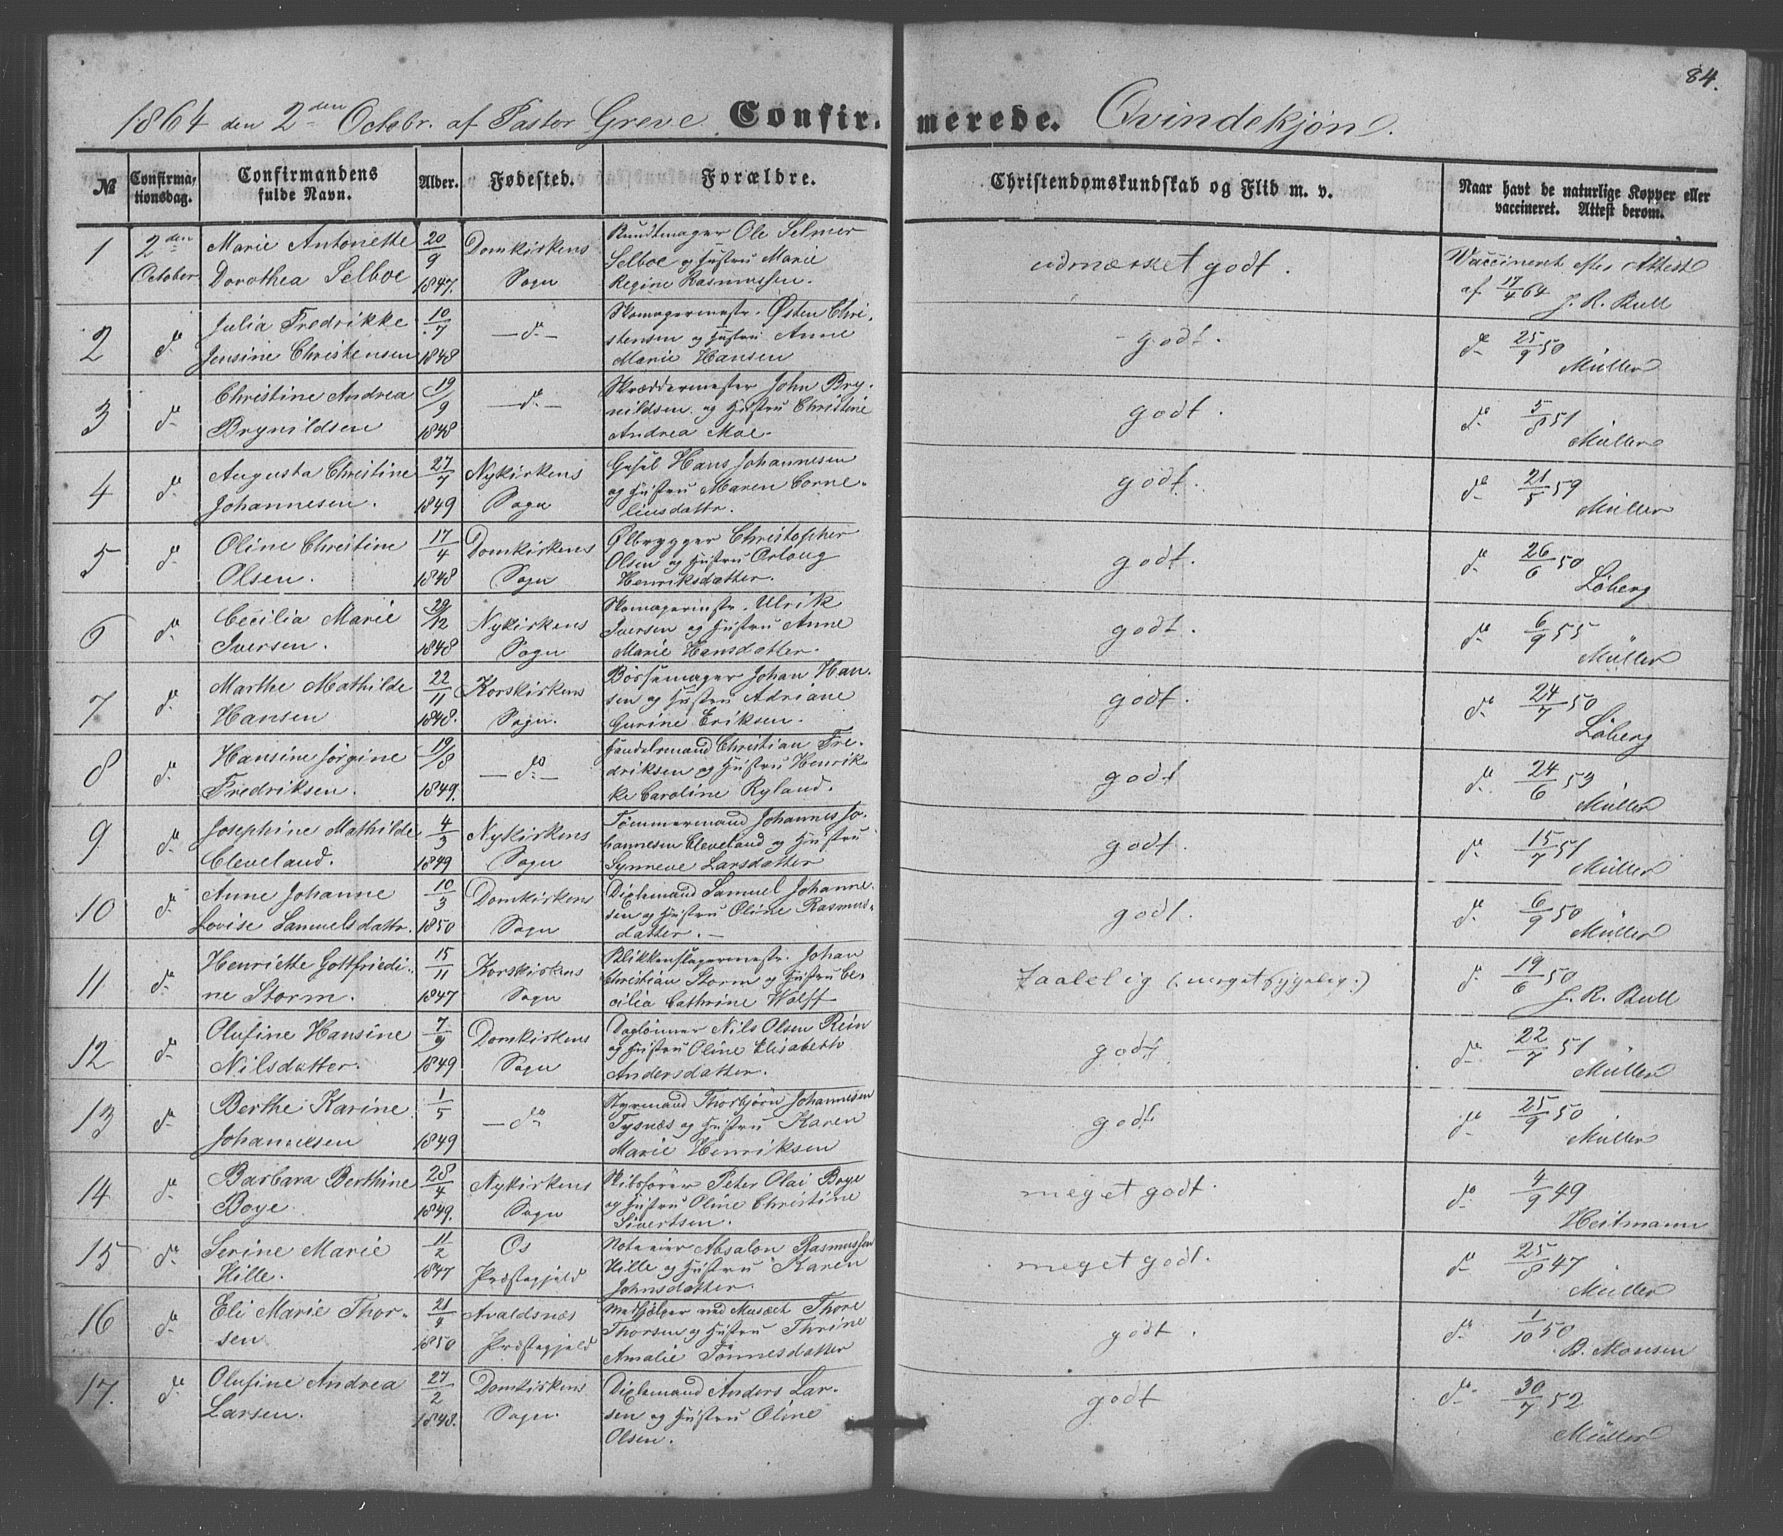 84.
1864 den 2den Octobr. af Pastor Greve Confirmerede. Qvindekjøn.
№ Confirmationsdag. Confirmandens fulde Navn. Alder. Fødested. Forældre. Christendomskundskab og Flid m. v. Naar havt de naturlige Kopper eller vaccineret. Attest derom.
1 2den Marie Antonette 20/9 Domkirkens Bundtmager Ole Selmer
October. Dorothea Selboe 1847. Sogn Selboe og Hustru Marie udmærket godt. Vaccineret efter Attest
Regine Rasmussen. af 17/4 64 J. R. Bull
2 do Julia Fredrikke 10/7 —do— Skomagermestr. Østen Chri-
Jensine Christensen 1848 stensen og Hustru Anne godt. do 25/9 50
Marie Hansen Müller
3 do Christine Andrea 19/9 —do— Skræddermester John Bry-
Brynildsen 1848 nildsen og Hustru Christine godt. do 5/8 51
Andrea Moe. Müller
4 do Augusta Christine 27/7 Nykirkens Hans Johannesen
Johannesen. 1849 Sogn og Hustru Maren Corne- godt. do 21/5 59
liusdattr. Müller
5 do Oline Christine 17/4 Domkirkens Ølbrygger Christopher
Olsen. 1848 Sogn Olsen og Hustru godt. do 26/6 50
Henriksdatter. Løberg
6 do Cecilia Marie 29/12 Nykirkens Skomagermstr. Ulrik
Iversen. 1848 Sogn Iversen og Hustru Anne godt. do 6/9 55
Marie Hansdatter. Müller
7 do Marthe Mathilde 22/11 Korskirkens Bøssemager Johan Han-
Hansen 1848. Sogn. sen og Hustru Adriane godt. do 24/7 50
Gurine Eriksen. Løberg
8 do Hansine Jørgine 19/8 —do— Handelsmand Christian Fre-
Fredriksen. 1849. driksen og Hustru Henrik godt do 24/6 53
ke Caroline Ryland. Müller
9 do Josephine Mathilde 4/3 Nykirkens Tømmermand Johannes Jo-
Cleveland. 1849 Sogn hannesen Cleveland og Hustru godt. do 15/7 51
Synneve Larsdatter Müller
10 do Anne Johanne 10/3 Domkirkens Dixlemand Samuel Johanne-
Lovise Samuelsdattr. 1850 Sogn sen og Hustru Oline Rasmus- godt. do 6/9 50
datter. — Müller
11 do Henriette Gottfriedi- 15/11 Korskirkens Blikkenslagermestr. Johan
ne Storm. 1847 Sogn Christian Storm og Hustru Ce- Taalelig (: meget sygelig :) do 19/6 50
cilia Cathrine Wolff J. R. Bull
12 do Olufine Hansine 7/9 Domkirkens Daglønner Nils Olsen Rein
Nilsdatter. 1849 Sogn og Hustru Oline Elisabeth godt. do 22/7 51
Andersdatter. Müller
13 do Berthe Karine 1/5 —do Styrmand Thorbjørn Johannesen
Johannesen 1849 Tysnæs og Hustru Karen godt do 25/9 50
Marie Henriksen Müller
14 do Barbara Berthine 28/4 Nykirkens Skibsfører Peter Olai Boye
Boye. 1849. Sogn og Hustru Oline Christine meget godt. do 4/9 49
Sivertsen. Heitmann
15 do Serine Marie 11/2 Os Noteeier Absalon Rasmussen
Hille. 1847 Præstegjeld Hille og Hustru Karen meget godt. do 25/8 47
Johnsdatter. Müller
16 do Eli Marie Thor- 21/4 Avaldsnæs Medhjælper ved Musæet Thore
sen 1850 Præstegjeld Thorsen og Hustru Thrine godt. do 1/10 50
Amalie Tønnesdatter B. Monsen
17. do Olufine Andrea 27/2 Domkirkens Dixlemand Anders Lar-
Larsen. 1848. Sogn. sen og Hustru Oline godt do 30/7 52
Olsen. Müller